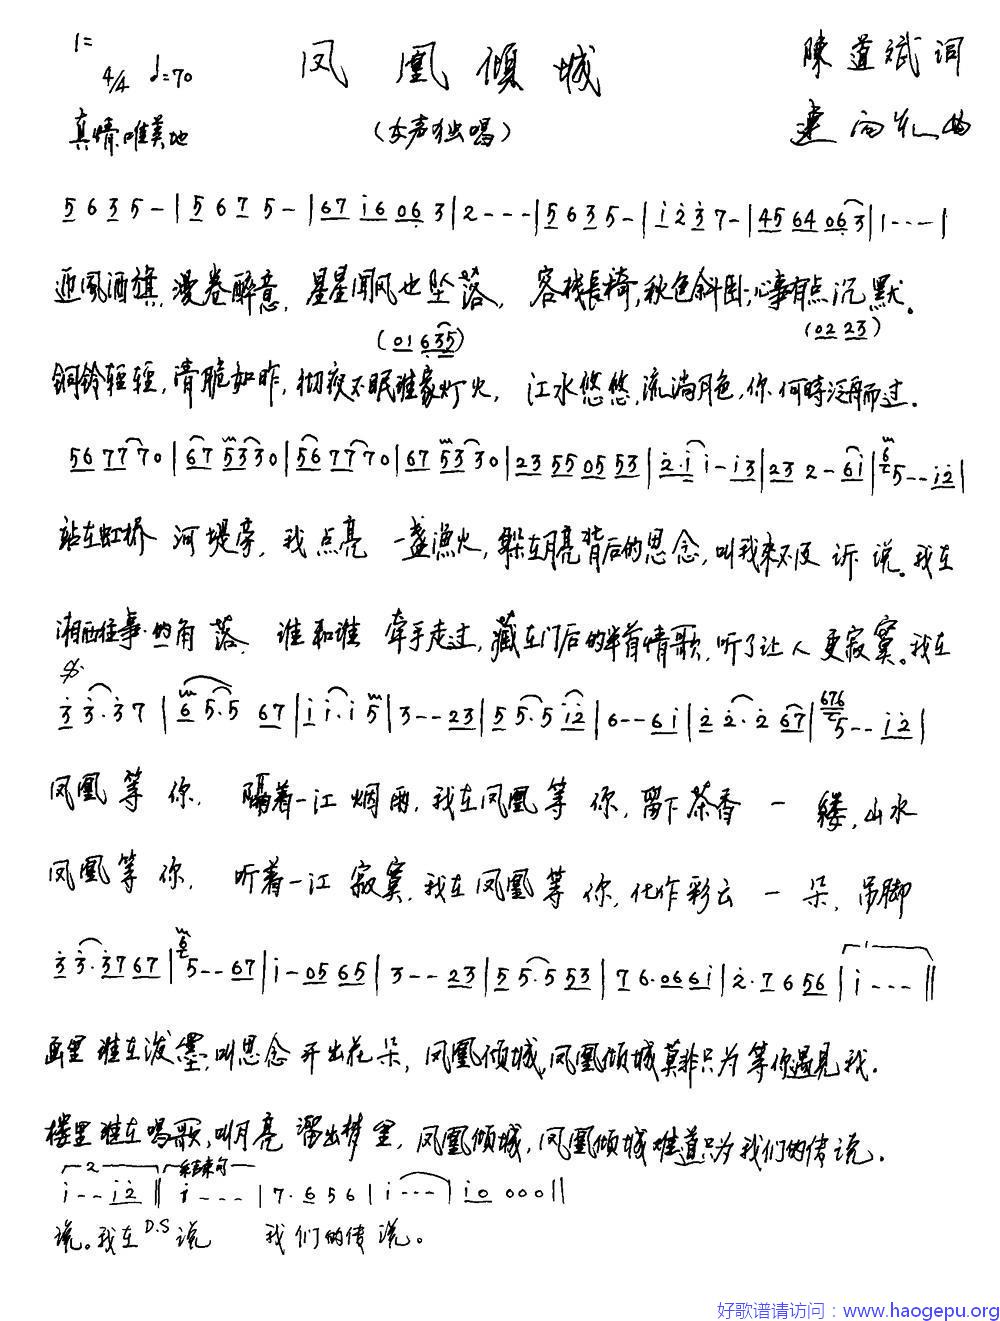 1=
4/4 ♩=70
凤凰倾城
陳道斌 词
真情、唯美地
(女声独唱)
曲
5 6 3 5 - | 5 6 7 5 - | 67 i6 06 3 | 2 - - - | 5 6 3 5 - | i 2 3 7 - | 45 64 06 3 | 1 - - - |
迎风酒旗，漫卷醉意，星星闻风也坠落，客栈長椅，秋色斜卧，心事有点沉默。
(01 635) (02 23)
铜铃轻轻，清脆如昨，彻夜不眠谁家灯火，江水悠悠，流淌月色，你何時泛舟而过．
56 77 70 | 67 53 30 | 56 77 70 | 67 53 30 | 23 55 05 53 | 2·i i - i3 | 23 2 - 6i | 6 5 - - i2 |
站在虹桥 河堤旁，我点亮 一盏漁火，躲在月亮背后的思念，叫我来不及诉说。我在
湘西往事的角落，谁和谁 牵手走过，藏在门后的半首情歌，听了让人更寂寞。我在
3 3·3 7 | 6 5·5 67 | i i·i 5 | 3 - - 23 | 5 5·5 i2 | 6 - - 6i | 2 2·2 67 | 676 5 - - i2 |
凤凰等你， 隔着一江烟雨，我在凤凰等你，留下茶香一缕，山水
凤凰等你， 听着一江寂寞，我在凤凰等你，化作彩云一朵，吊脚
3 3·3 7 67 | 6 5 - - 67 | i - 05 65 | 3 - - 23 | 5 5·5 53 | 7 6·06 6i | 2·7 6 56 | 1 i - - - ||
画里谁在泼墨，叫思念开出花朵，凤凰倾城，凤凰倾城莫非只为等你遇见我．
楼里谁在唱歌，叫月亮溜出梦里，凤凰倾城，凤凰倾城难道只为我们的传说．
2 结束句
i - - i2 || i - - - | 7·6 5 6 | i - - - | i0 000 ||
说。我在 D.S 说 我们的传说。
好歌谱请访问：www.haogepu.org